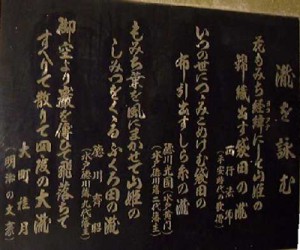 瀧を詠む
花もみち経緯にして山姫の
錦織出す袋田の瀧
西行法師
(平安時代の歌僧)
いつの世につゝみこめけむ袋田の
布引出すしら糸の瀧
徳川光圀(水戸黄門)
(水戸徳川第二代藩主)
もみち葉を風にまかせて山姫の
しみつをくゝるふくろ田の瀧
徳川斉昭
(水戸徳川第九代藩主)
御空より巌を傳ひて飛落ちて
すべりて散りて四度の大瀧
大町桂月
(明治の文豪)